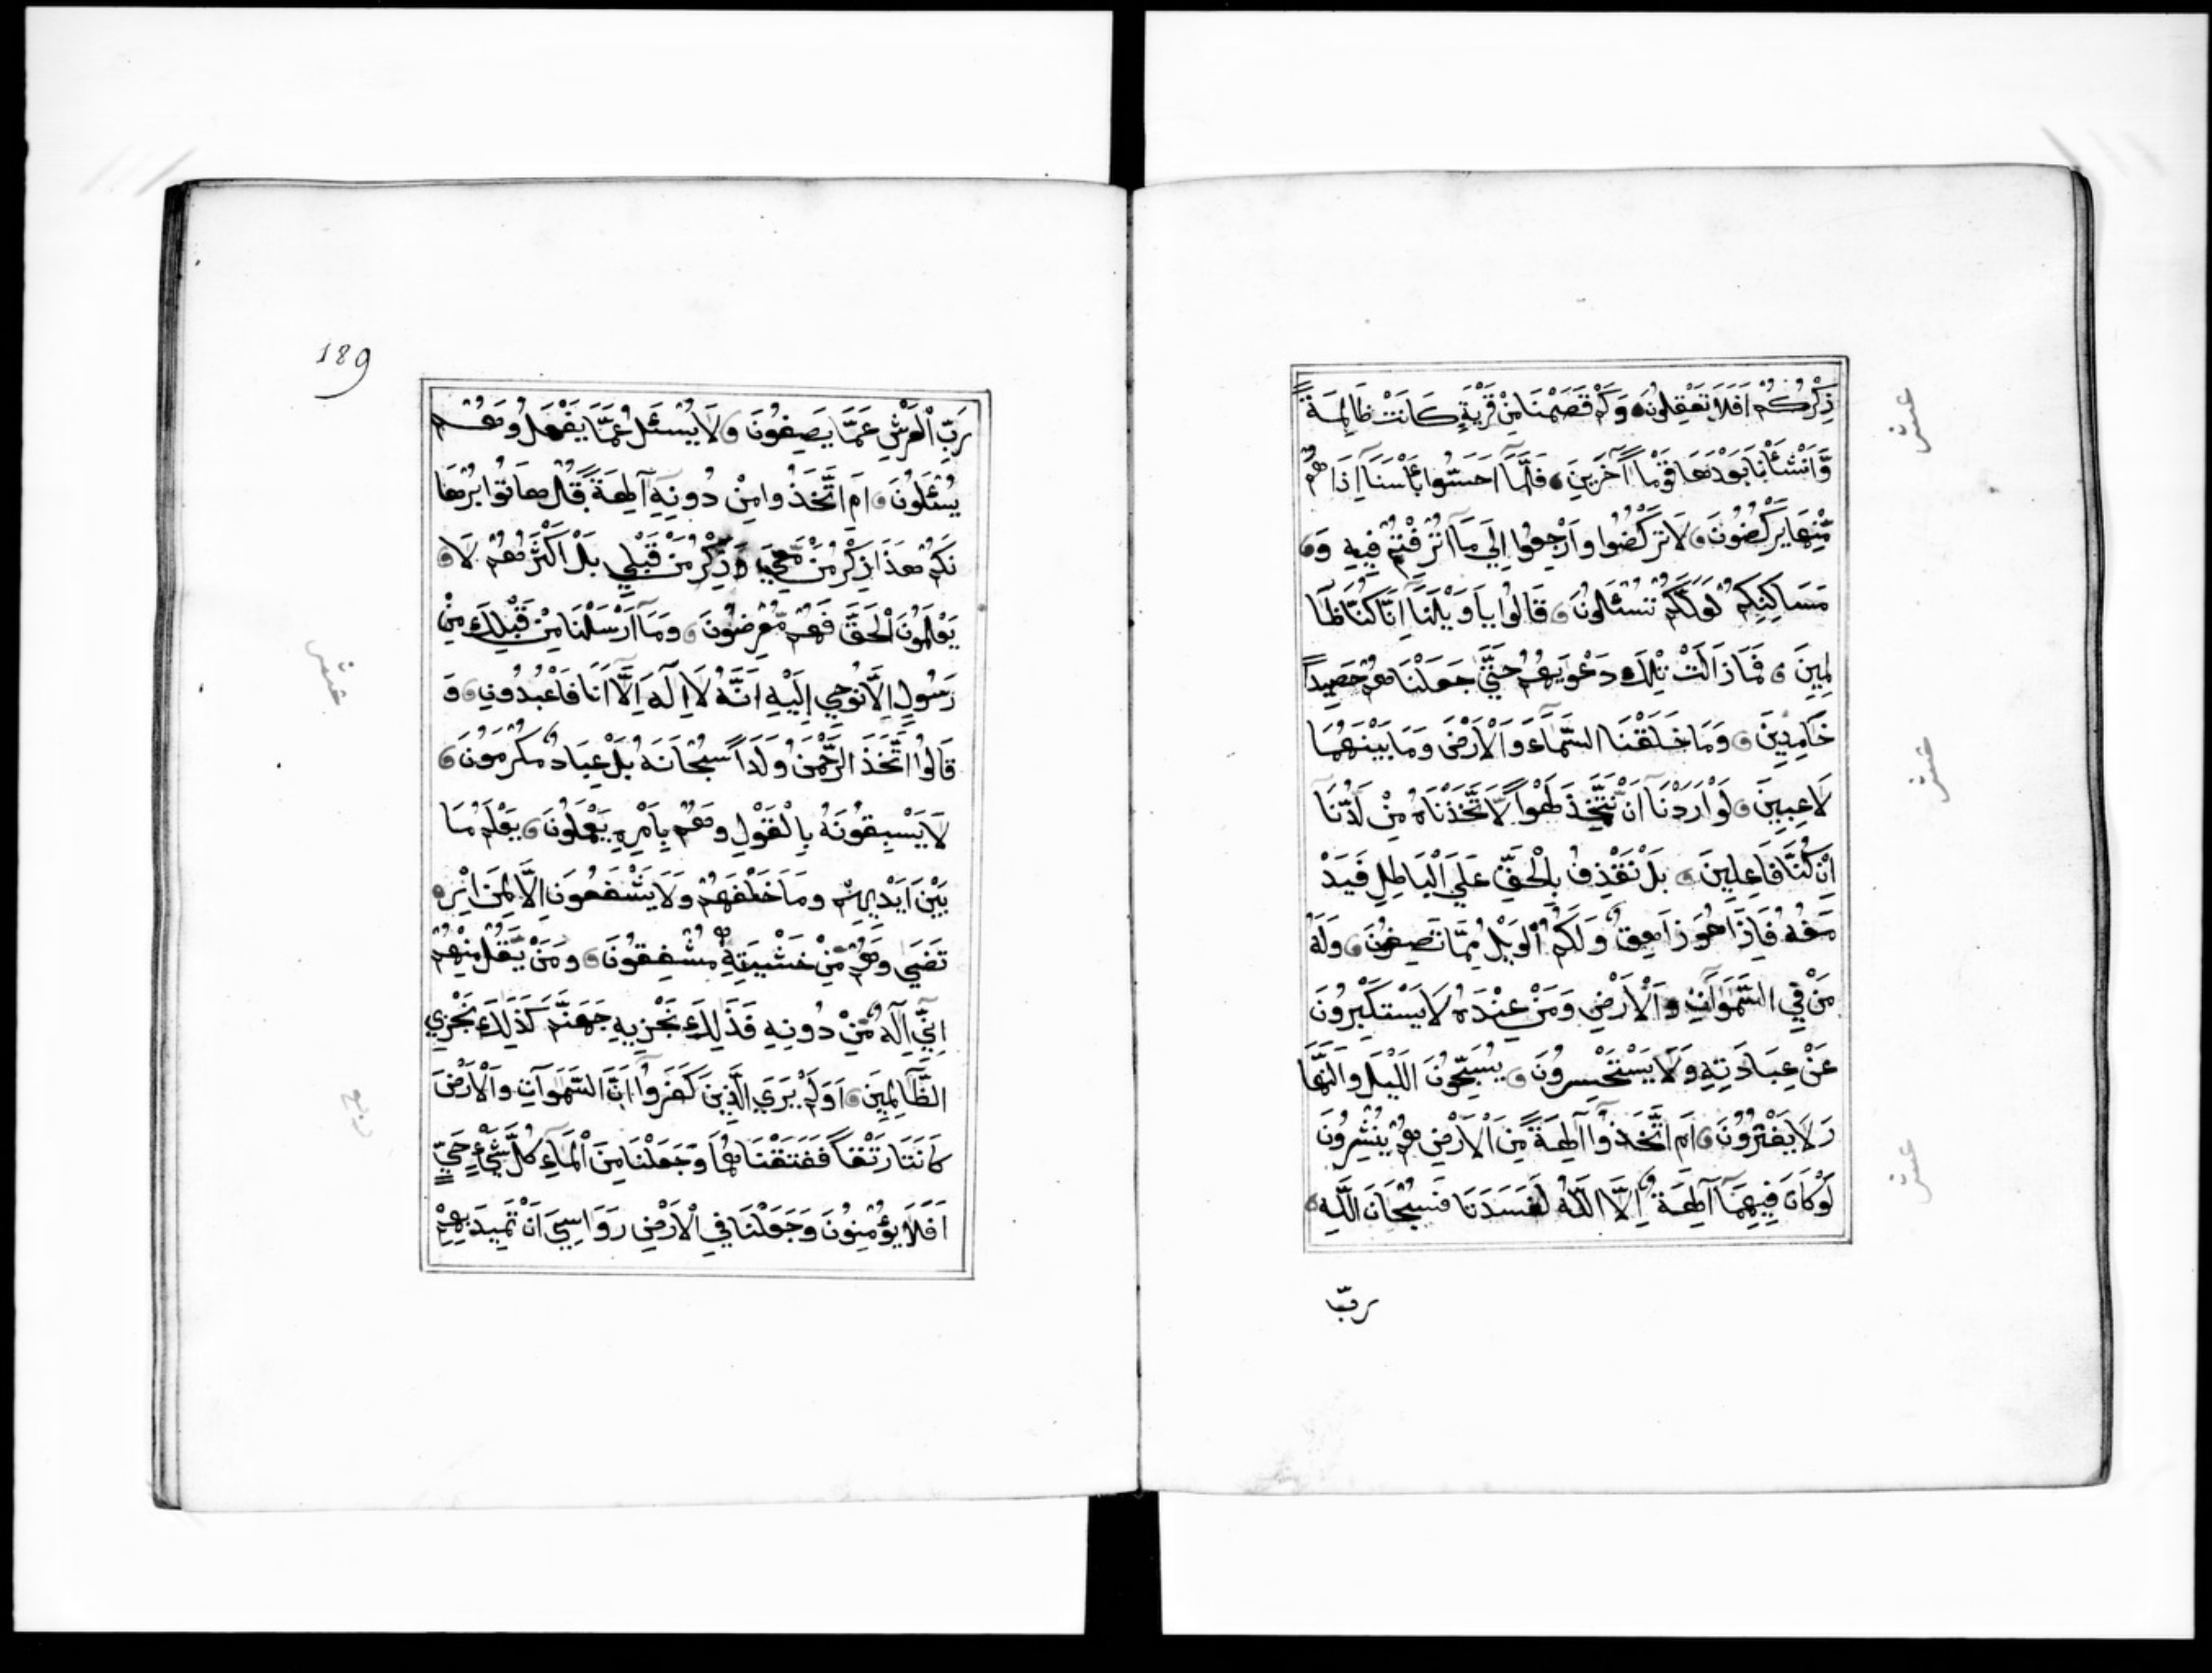 ذِكْرُكُمْ اَفَلَا تَعْقِلُونَ وَكَمْ قَصَمْنَا مِنْ قَرْيَةٍ كَانَتْ ظَالِمَةً
وَّاَنْشَأْنَا بَعْدَهَا قَوْمًا آخَرِينَ فَلَمَّآ اَحَسُّوا بَأْسَنَآ اِذَا هُمْ
مِّنْهَا يَرْكُضُونَ لَا تَرْكُضُوا وَارْجِعُوا اِلَي مَآ اُتْرِفْتُمْ فِيهِ وَ
مَسَاكِنِكُمْ لَعَلَّكُمْ تُسْئَلُونَ قَالُوا يَا وَيْلَنَآ اِنَّا كُنَّا ظَا
لِمِينَ فَمَا زَالَتْ تِلْكَ دَعْوَيهُمْ حَتَّي جَعَلْنَاهُمْ حَصِيدًا
خَامِدِينَ وَمَا خَلَقْنَا السَّمَآءَ وَالْاَرْضَ وَمَا بَيْنَهُمَا
لَاعِبِينَ لَوْ اَرَدْنَآ اَنْ نَّتَّخِذَ لَهْوًا لَّاتَّخَذْنَاهُ مِنْ لَدُنَّا
اِنْ كُنَّا فَاعِلِينَ بَلْ نَقْذِفُ بِالْحَقِّ عَلَي الْبَاطِلِ فَيَدْ
مَغُهُ فَاِذَا هُوَ زَاهِقٌ وَلَكُمُ الْوَيْلُ مِمَّا تَصِفُونَ وَلَهُ
مَنْ فِي السَّمَوَاتِ وَالْاَرْضِ وَمَنْ عِنْدَهُ لَا يَسْتَكْبِرُونَ
عَنْ عِبَادَتِهِ وَلَا يَسْتَحْسِرُونَ يُسَبِّحُونَ اللَّيْلَ وَالنَّهَا
رَ لَا يَفْتُرُونَ اَمِ اتَّخَذُوآ آلِهَةً مِّنَ الْاَرْضِ هُمْ يُنْشِرُونَ
لَوْ كَانَ فِيهِمَآ آلِهَةٌ اِلَّا اللَّهُ لَفَسَدَتَا فَسُبْحَانَ اللَّهِ
ربّ
عشر
عشر
عشر
189
رَبِّ الْعَرْشِ عَمَّا يَصِفُونَ لَا يُسْئَلُ عَمَّا يَفْعَلُ وَهُمْ
يُسْئَلُونَ اَمِ اتَّخَذُوا مِنْ دُونِهِ آلِهَةً قُلْ هَاتُوا بُرْهَا
نَكُمْ هَذَا ذِكْرُ مَنْ مَّعِيَ وَذِكْرُ مَنْ قَبْلِي بَلْ اَكْثَرُهُمْ لَا
يَعْلَمُونَ الْحَقَّ فَهُمْ مُّعْرِضُونَ وَمَآ اَرْسَلْنَا مِنْ قَبْلِكَ مِنْ
رَسُولٍ اِلَّا نُوحِي اِلَيْهِ اَنَّهُ لَآ اِلَهَ اِلَّآ اَنَا فَاعْبُدُونِ وَ
قَالُوا اتَّخَذَ الرَّحْمَنُ وَلَدًا سُبْحَانَهُ بَلْ عِبَادٌ مُكْرَمُونَ
لَا يَسْبِقُونَهُ بِالْقَوْلِ وَهُمْ بِاَمْرِهِ يَعْمَلُونَ يَعْلَمُ مَا
بَيْنَ اَيْدِيهِمْ وَمَا خَلْفَهُمْ وَلَا يَشْفَعُونَ اِلَّا لِمَنِ ارْ
تَضَي وَهُمْ مِّنْ خَشْيَتِهِ مُشْفِقُونَ وَمَنْ يَّقُلْ مِنْهُمْ
اِنِّي اِلَهٌ مِّنْ دُونِهِ فَذَلِكَ نَجْزِيهِ جَهَنَّمَ كَذَلِكَ نَجْزِي
الظَّالِمِينَ اَوَلَمْ يَرَي الَّذِينَ كَفَرُوآ اَنَّ السَّمَوَاتِ وَالْاَرْضَ
كَانَتَا رَتْقًا فَفَتَقْنَاهُمَا وَجَعَلْنَا مِنَ الْمَآءِ كُلَّ شَيْءٍ حَيٍّ
اَفَلَا يُؤْمِنُونَ وَجَعَلْنَا فِي الْاَرْضِ رَوَاسِيَ اَنْ تَمِيدَ بِهِمْ
عشر